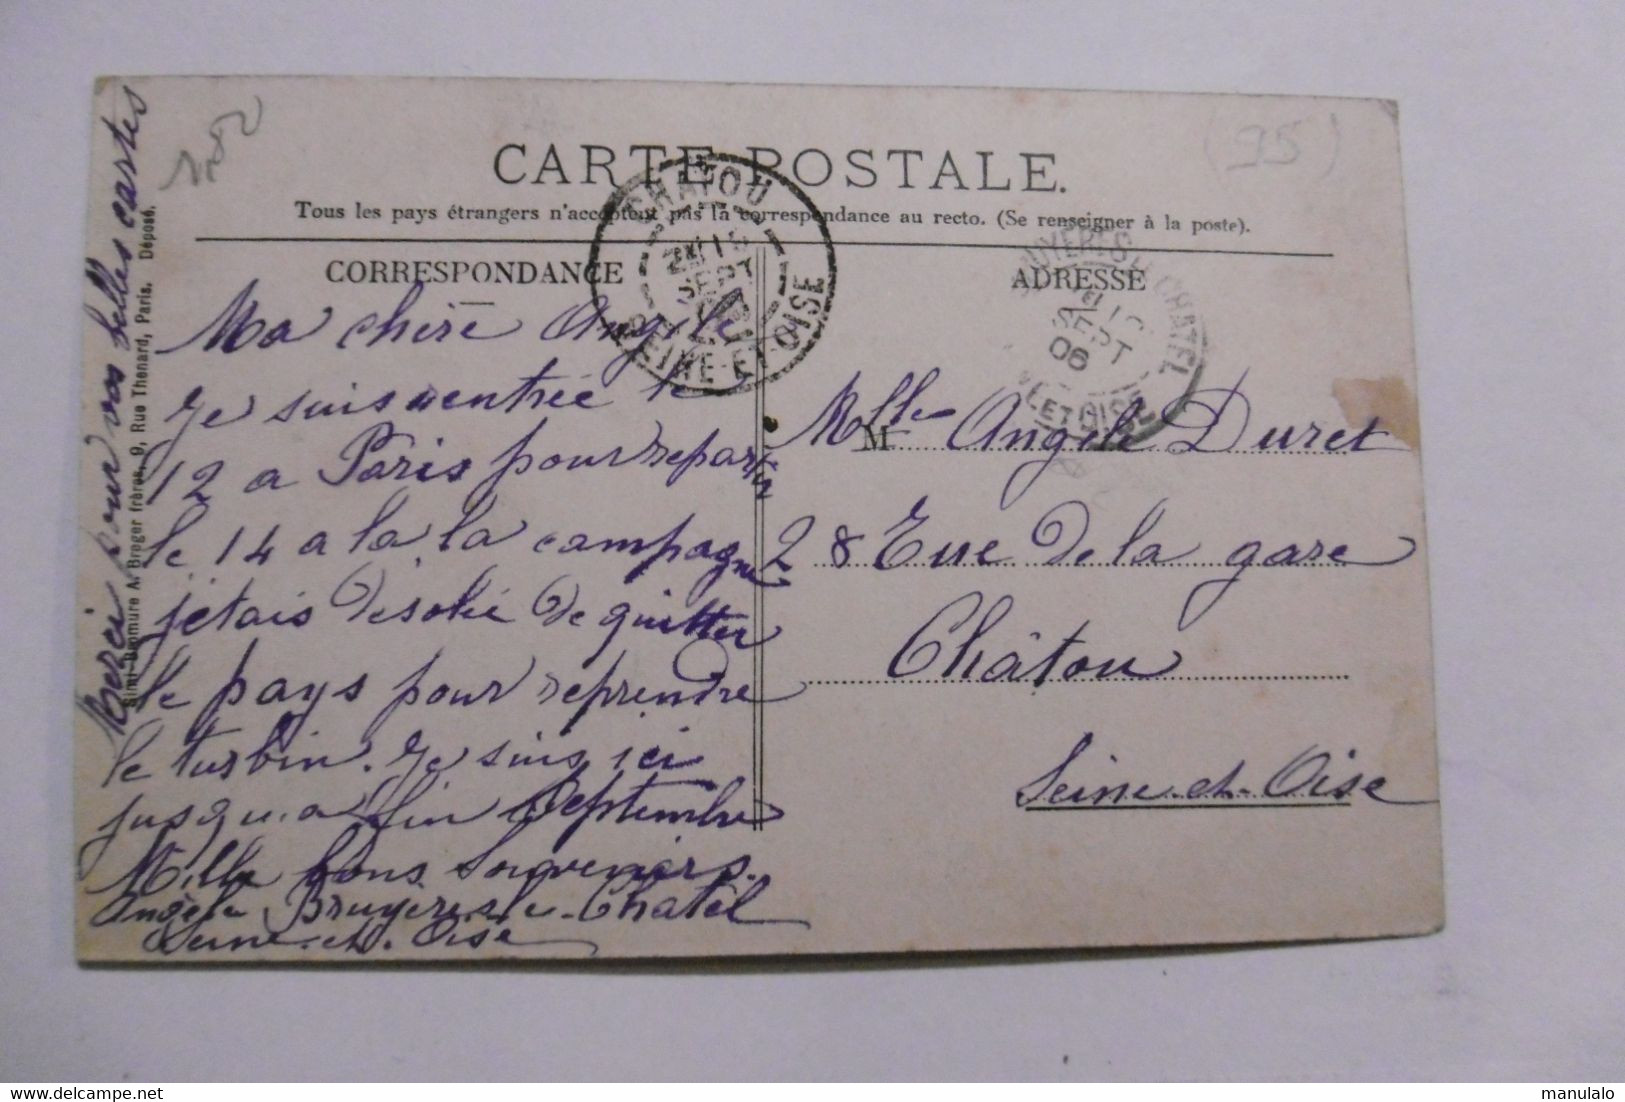 CARTE POSTALE.
Tous les pays étrangers n'acceptent pas la correspondance au recto. (Se renseigner à la poste).
CORRESPONDANCE
ADRESSE
Ma chère Angèle
Je suis rentrée le
12 a Paris pour repartir
le 14 a la la campagne
jetais désolée de quitter
le pays pour reprendre
le turbin. Je suis ici
jusqu'a fin Septembre
Mille bons Souvenirs.
Angèle Bruyeres-le-Chatel
Seine-et-Oise
Merci pour vos belles cartes
Simi-Bromure A. Breger frères, 9, Rue Thenard, Paris. Déposé.
M
Mlle Angèle Duret
28 Rue de la gare
Châtou
Seine-et-Oise
CHATOU
SEINE-ET-OISE
CHATEL
SEPT
06
(95)
manulalo